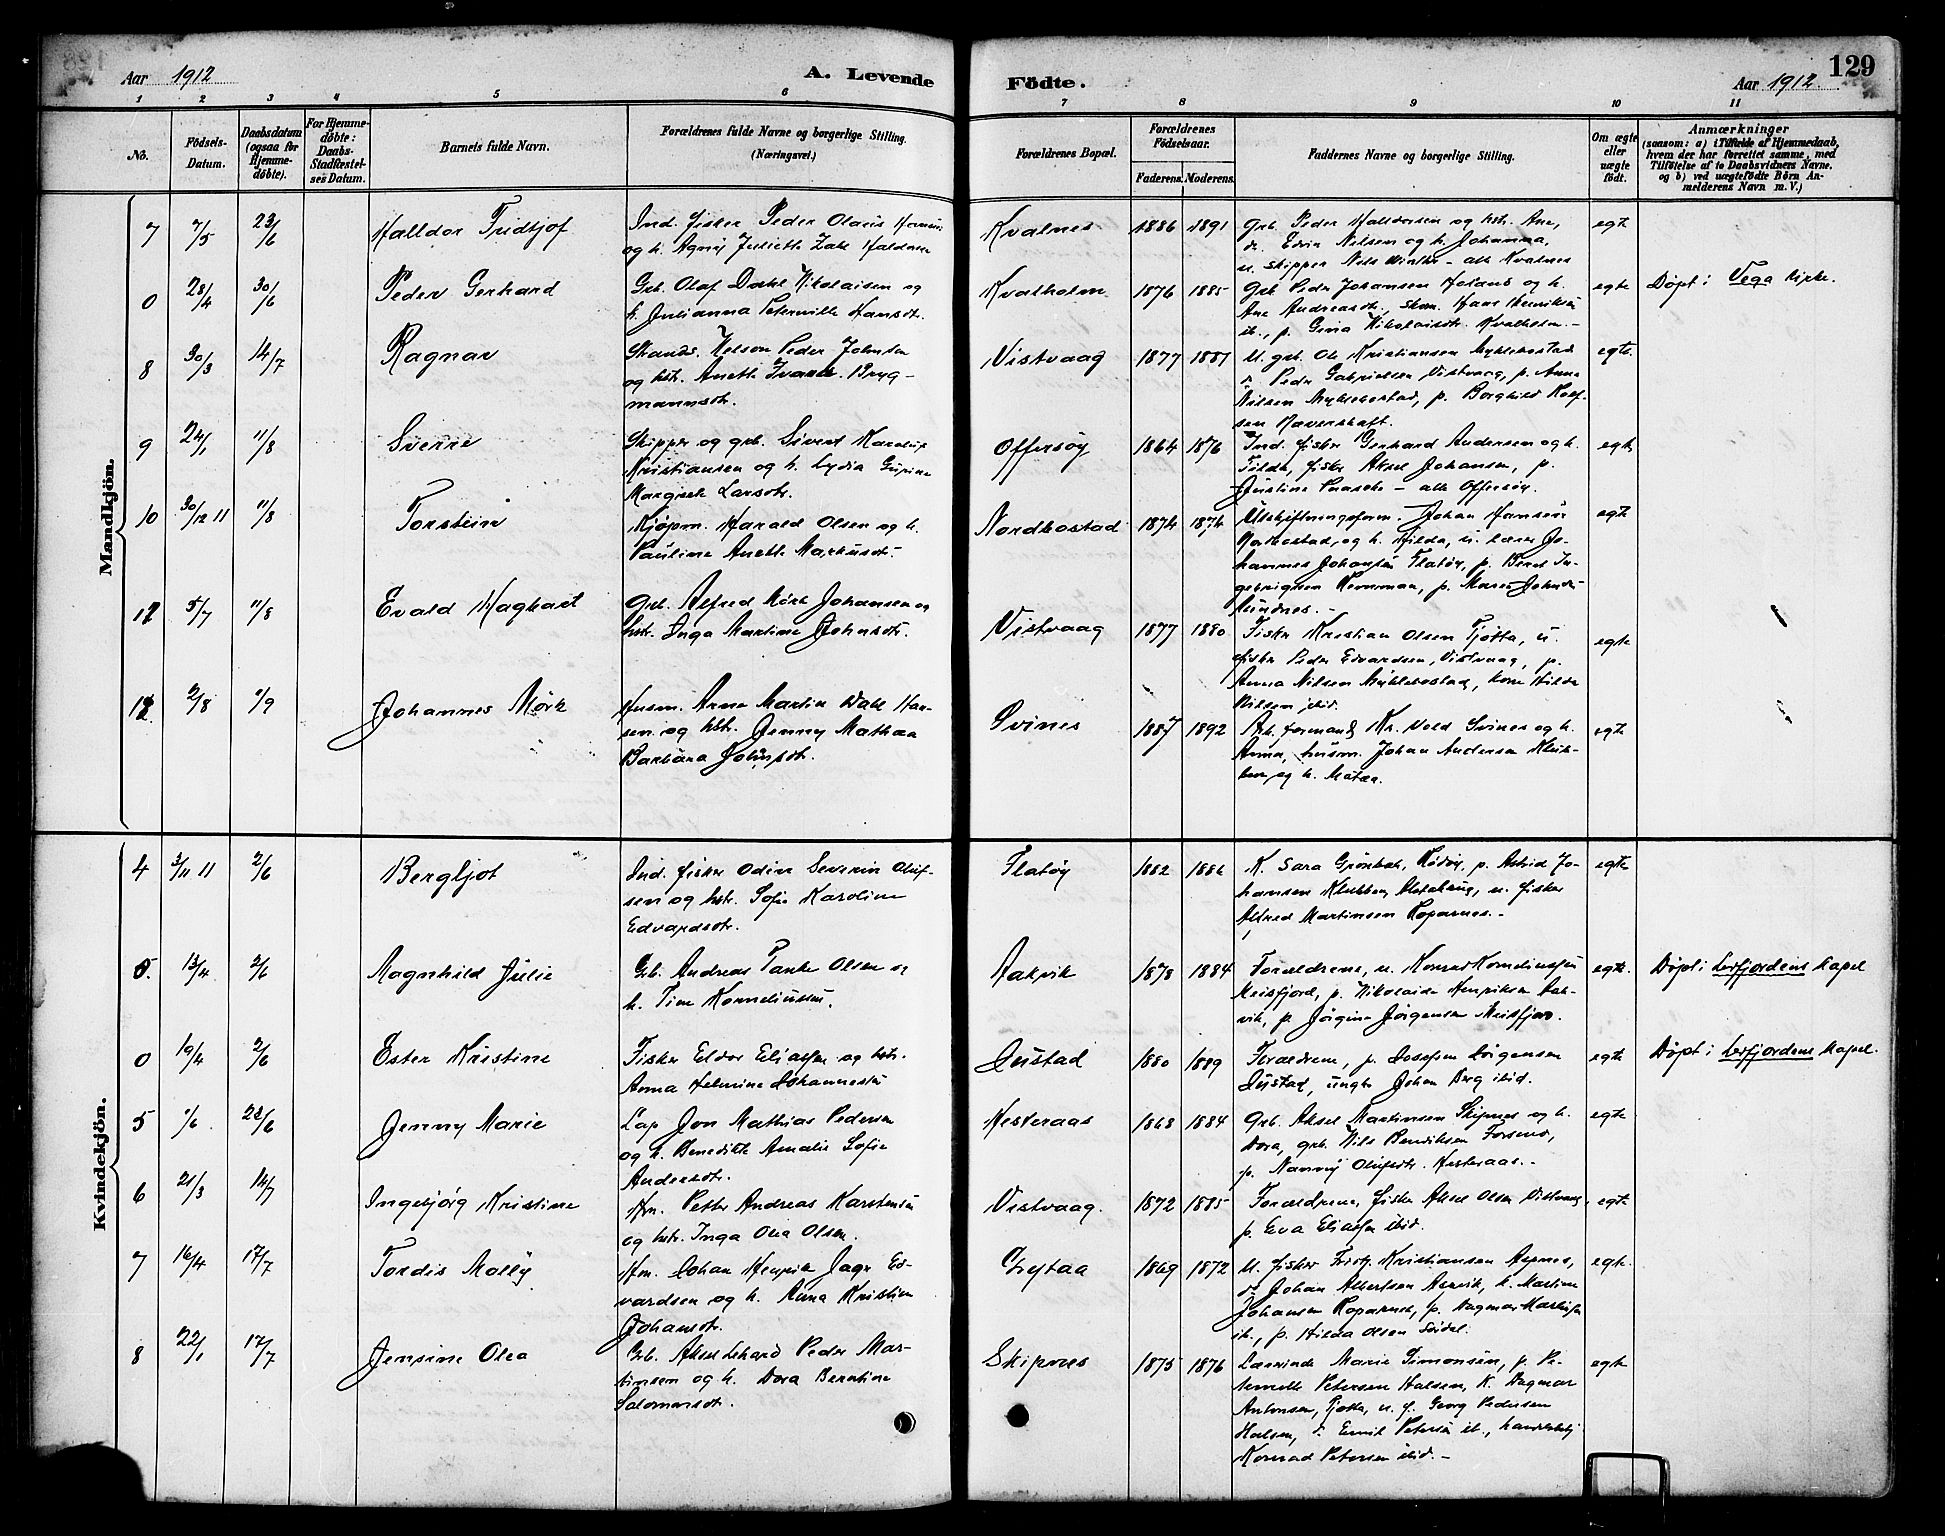 Aar 1912
A. Levende
Födte.
Aar 1912.
129
1 2 3 4 5 6 7 8 9 10 11
No.
Födsels-
Datum.
Daabsdatum
(ogsaa for
Hjemme-
döbte).
For Hjemme-
döbte:
Daabs-
Stadfæstel-
ses Datum.
Barnets fulde Navn.
Forældrenes fulde Navne og borgerlige Stilling.
(Næringsvei.)
Forældrenes Bopæl.
Forældrenes
Födselsaar.
Faderens. Moderens.
Faddernes Navne og borgerlige Stilling.
Om ægte
eller
uægte
födt.
Anmærkninger
(saasom: a) i Tilfælde af Hjemmedaab,
hvem der har forrettet samme, med
Tilföielse af to Daabsvidners Navne,
og b) ved uægtefödte Börn An-
melderens Navn m. V.)
Mandkjön.
7 7/5 23/6 Halldor Fridtjof
Ind. fisker Peder Olaus
og h. Agnes Julieth
Kvalnes 1886 1891
Grb. Peder Halldorsen og hst. Ane,
Edvin Nilsen og h. Johanna,
u. skipper Nils Winther - alle Kvalnes
egte
0 28/4 30/6 Peder Gerhard
Grb. Olaf Dahl Nikolaisen og
h. Julianna Peternille Hansdtr.
Kvalholm 1876 1885
Grb. Peder Johansen Höland og h.
Ane Andreasdtr., Hans Henriksen
ib., p. Gina Nikolaisdtr. Kvalholm.-
egte
Döpt i Vega kirke.
8 30/3 14/7 Ragnar
Strands. Nelson Peder Johnsen
og hst. Aneth Bryg-
mannsdtr.
Vistvaag 1877 1881
U. grb. Ole Kristiansen Myklebostad
Peder Gabrielsen Vistvaag, p. Anna
Nilsen Myklebostad, p. Borghild Rolf-
sen
egte.
9 24/1 11/8 Sverre
Skipper og grb. Sivert
Kristiansen og h. Lydia
Margrete Larsdtr.
Offersöy 1864 1876
Ind. fisker Gerhard Andersen og h.
Tilda, fisker Aksel Johansen, p.
Justine Paasche - alle Offersöy.
egte
10 30/12 11 11/8 Torstein
Kjöpm. Harald Olsen og h.
Pauline Aneth Markusdtr.
Nordbostad 1874 1874
Utskiftningsform. Johan Hansen
Nordbostad, og h. Hilda, u. lærer Jo-
hannes Johansen Flatöy, p. Berit In-
gebrigtsen p. Maren
egte
11 5/7 11/8 Evald Haghart
Grb. Alfred Mörk Johansen og
hst. Inga Martine Johnsdtr.
Vistvaag 1877 1880
Fisker Kristian Olsen Tjötta, u.
fisker Peder Edvardsen, Vistvaag, p.
Anna Nilsen Myklebostad, Hilda
Nilsen ibid.
egte
12 2/8 1/9 Johannes Mörk
Husm. Arne Martin Dahl Han-
sen og hst. Jenny Mathea
Barbara
Svines 1887 1892
Arb. formand Kr. Vold Svines og h.
Anna, husm. Johan Andersen
og h. Matea.
egte
Kvindekjön.
4 3/11 11 2/6 Bergljot
Ind. fisker Odin Severin Oluf-
sen og hst. Sofie Karoline
Edvardsdtr.
Flatöy 1882 1886
K. Sara Grönbek, Rödöy, p. Astrid Jo-
hansen u. fisker
Alfred Martinsen Koparnes.-
egte
5. 13/4 2/6 Magnhild Julie
Grb. Andreas Tanke Olsen og
h. Tine Korneliussen.
Aakvik 1878 1884
Forældrene, u. Konrad Korneliussen
Meisfjord, p. Nikolaide Henriksen Aak-
vik, p. Jörgine Jörgensen Meisfjord.
egte.
Döpt i Leirfjordens kapel
0 19/4 2/6 Ester Kristine
Fisker Eldor Eliassen og hst.
Anna Helmine Johannesen
Justad 1880 1889
Forældrene, p. Josefsen Jörgensen
Justad, ungk. Johan Berg ibid.
egte
Döpt i Leirfjordens kapel.
5 1/6 22/6 Jenny Marie
Lap Jon Mathias Pedersen
og h. Benedikte Amalie Sofie
Andersdtr.
Hesteraas 1868 1884
Grb. Aksel Martinsen Skipnes og h.
Dora, grb. Nils Bendiksen Forsmo,
p. Nanny Olufsdtr. Hesteraas.-
egte
6 21/3 14/7 Ingebjörg Kristine
Hm. Petter Andreas Karstensen
og hst. Inga Olea Olsen.
Vistvaag. 1872 1885
Forældrene, fisker Aksel Olsen Vistvaag
p. Eva Eliassen ibid.
egte
7 16/4 17/7 Tordis Molly
Hm. Johan Henrik Ed-
vardsen og h. Anna Kristine
Johansdtr.
1869 1872
U. fisker Kristiansen
Johan Albertsen k. Martine
Johansen Koparnes, p. Dagmar
ib., p. Hilda Olsen
egte.
8 22/1 17/7 Jensine Olea
Grb. Aksel Lehard Peder Mar-
tinsen og h. Dora Berntine
Salomonsdt.
Skipnes 1875 1876
Lærerinde Marie Simonsen, p. Pe-
ternelle Petersen Halsen, k. Dagmar
Antonsen, Tjötta, u. f. Georg Pedersen
Halsen, Emil Petersen ib.,
Konrad Petersen ibid.-
egte